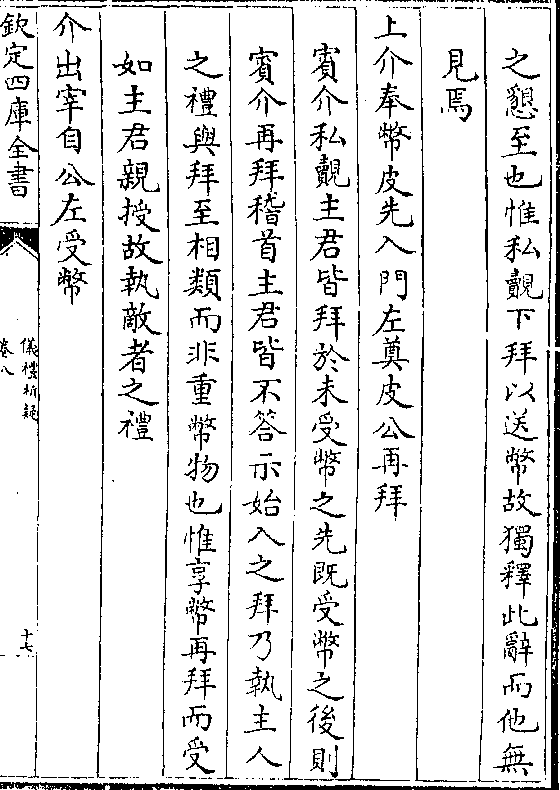 之懇至也惟私覿下拜以送幣故獨釋此辭而他無
見焉
上介奉幣皮先入門左奠皮公再拜
賓介私覿主君皆拜於未受幣之先既受幣之後則
賓介再拜稽首主君皆不答示始入之拜乃執主人
之禮與拜至相類而非重幣物也惟享幣再拜而受
如主君親授故執敵者之禮
介出宰自公左受幣
欽定四庫全書
儀禮析疑
卷八
十七